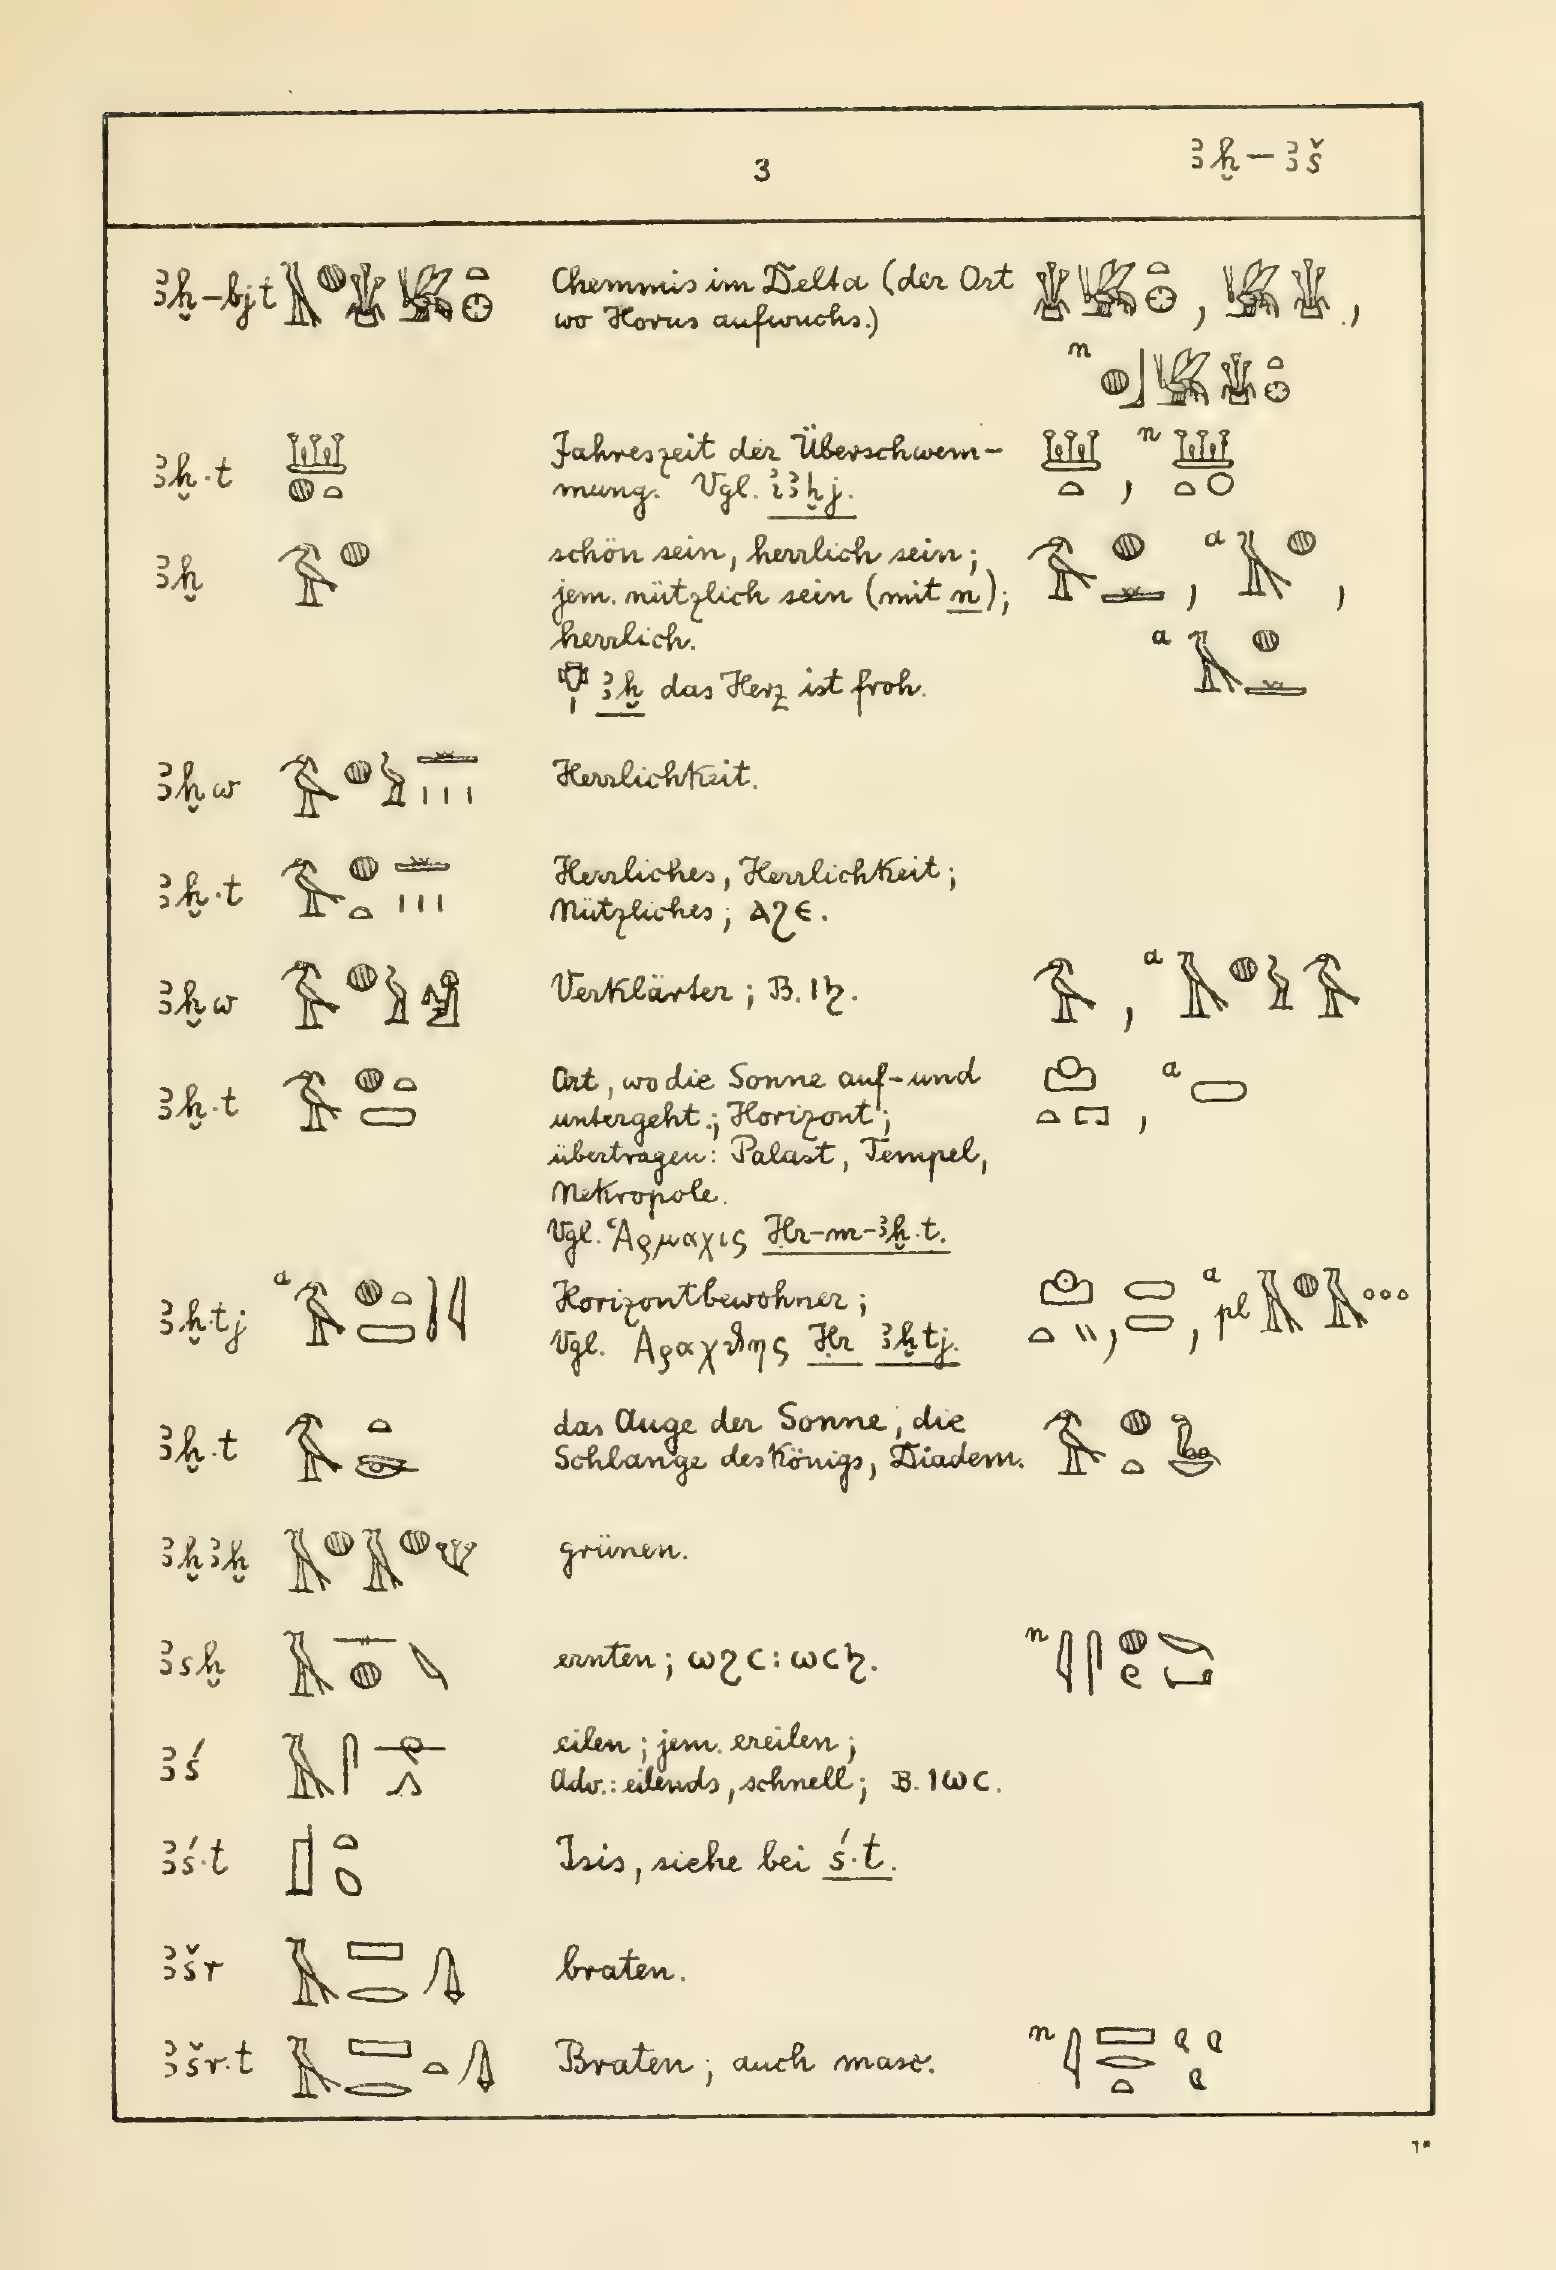 3
ꜣḫ – ꜣš
ꜣḫ-bjt Chemmis im Delta (der Ort
wo Horus aufwuchs.)
n
ꜣḫ·t Jahreszeit der Überschwem- n
mung. Vgl. iꜣḫj.
ꜣḫ schön sein, herrlich sein; a
jem. nützlich sein (mit n);
herrlich. a
ꜣḫ das Herz ist froh.
ꜣḫw Herrlichkeit.
ꜣḫ·t Herrliches, Herrlichkeit;
Nützliches; ⲁϩⲉ.
ꜣḫw Verklärter; B. ⲓϧ. a
ꜣḫ·t Ort, wo die Sonne auf- und a
untergeht.; Horizont;
übertragen: Palast, Tempel,
Nekropole.
Vgl. Ἁρμαχις Ḥr-m-ꜣḫ·t.
ꜣḫ·tj a Horizontbewohner; a pl
Vgl. Ἀραχθης Ḥr ꜣḫtj.
ꜣḫ·t das Auge der Sonne, die
Schlange des Königs, Diadem.
ꜣḫꜣḫ grünen.
ꜣsḫ ernten; ⲱϩⲥ: ⲱⲥϧ. n
ꜣś eilen; jem. ereilen;
Adv.: eilends, schnell; B. ⲓⲱⲥ.
ꜣś·t Isis, siehe bei ś·t.
ꜣšr braten.
ꜣšr·t Braten; auch masc. n
1*